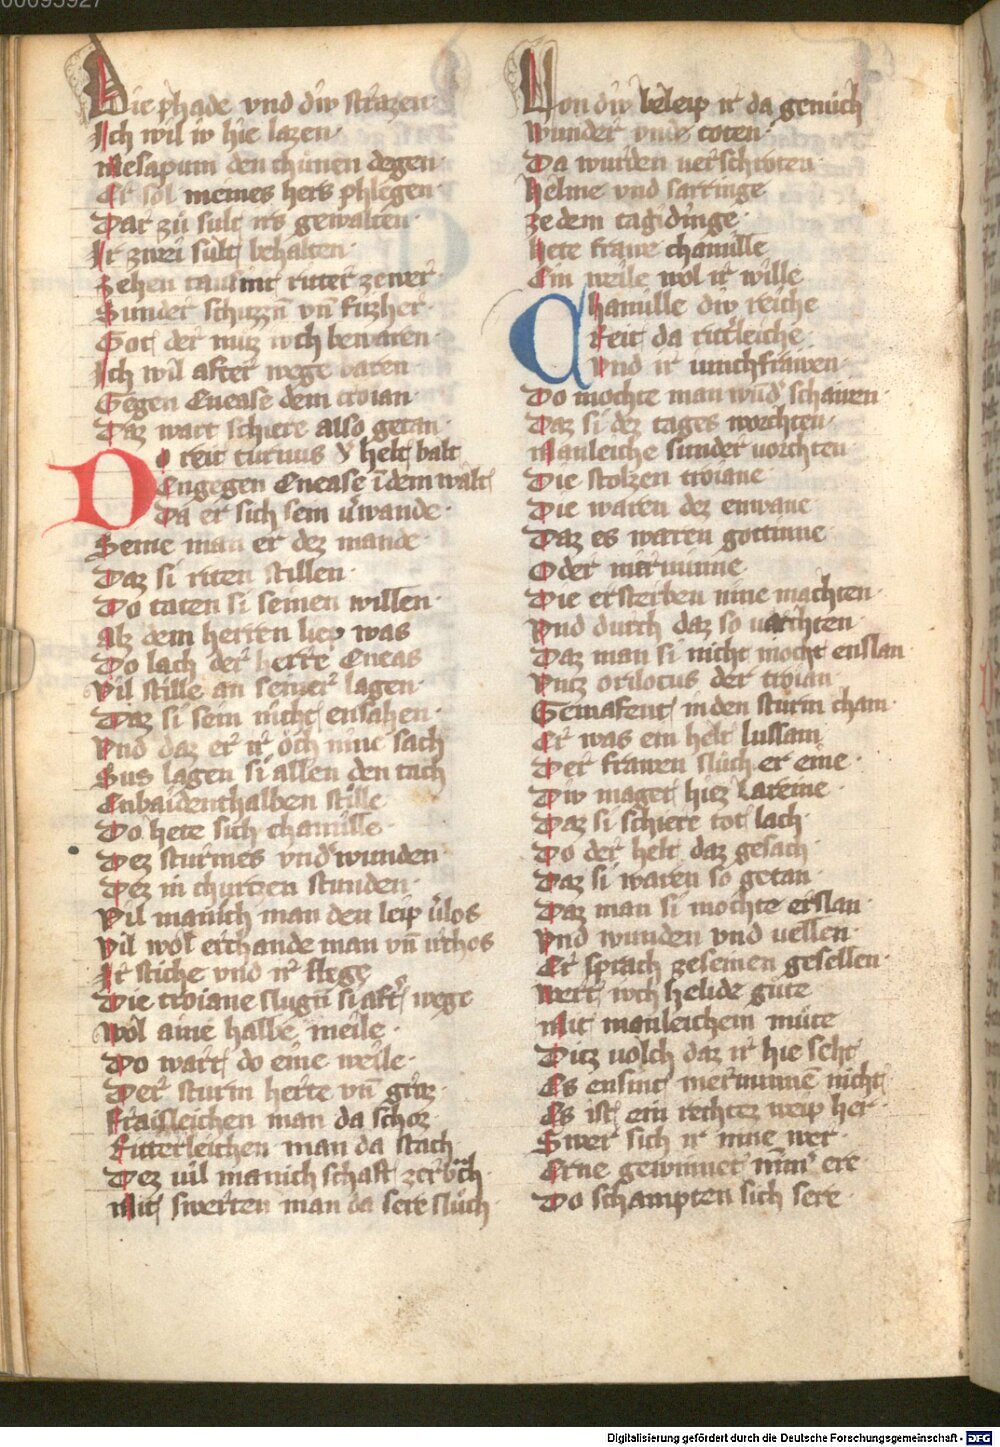 00095927
Die phade vnd div strazen
Ich wil iv hie lazen
Mesapum den chunen degen
Er sol meines hers phlegen
Dar zu sult irs gewalten
Ir zwei sult behalten
Zehen tausint ritter ze wer
Sunder schuzzn vn fuzher
Got der muz iuch bewaren
Ich wil after wege varen
Gegen Enease dem troian
Daz wart schiere also getan
Do reit turnus der helt balt
Engegen Enease i dem walt
Da er sich sein v'wande
Seine man er dez mande
Daz si riten stillen
Do taten si seinen willen
Als dem herren liep was
Do lach der herre Eneas
Vil stille an seiner lagen
Daz si sein nicht ensahen
Vnd daz er ir och nine sach
Sus lagen si allen den tach
Enbaidenthalben stille
Do hete sich chamille
Dez sturmes vnd'wunden
Dez in churtzen stunden
Vil manich man den leip v'los
Vil wol erchande man vn v'chos
Ir stiche vnd ir slege
Die troiane slugn si aft' wege
Wol aine halbe meile
Do wart do eine weile
Der sturm herte vn groz
Fraisleichen man da schoz
Ritterleichen man da stach
Dez vil manich schaft zerbrch
Mit swerten man da sere sluch
Von div beleip ir da genuch
Wunder vnde toten
Da wurden verschroten
Helme vnd sarringe
Ze dem tagidinge
Hete frawe chamille
Ein weile wol ir wille
Chamille div reiche
Reit da ritt'leiche
Vnd ir iunchfrawen
Do mochte man wnd' schawen
Daz si dez tages worchten
Manleiche sunder vorchten
Die stolzen troiane
Die waren dez enwane
Daz es waren gottinne
Oder merminne
Die ersterben nine machten
Vnd durch daz so vachten
Daz man si nicht mocht enslan
Vntz orilocus der troian
Gewafent in den sturm cham
Er was ein helt lussam
Der frawen sluch er eine
Div maget hiez Lareine
Daz si schiere tot lach
Do der helt daz gesach
Daz si waren so getan
Daz man si mochte erslan
Vnd wunden vnd vellen
Er sprach ze seinen gesellen
Wert iuch helide gute
Mit manleichem mute
Ditz volch daz ir hie seht
Es ensint merminne nicht
Es ist ein rechtez weip her
Swer sich ir nine wer
Erne gewinnet nimm' ere
Do schampten sich sere
Digitalisierung gefördert durch die Deutsche Forschungsgemeinschaft - DFG